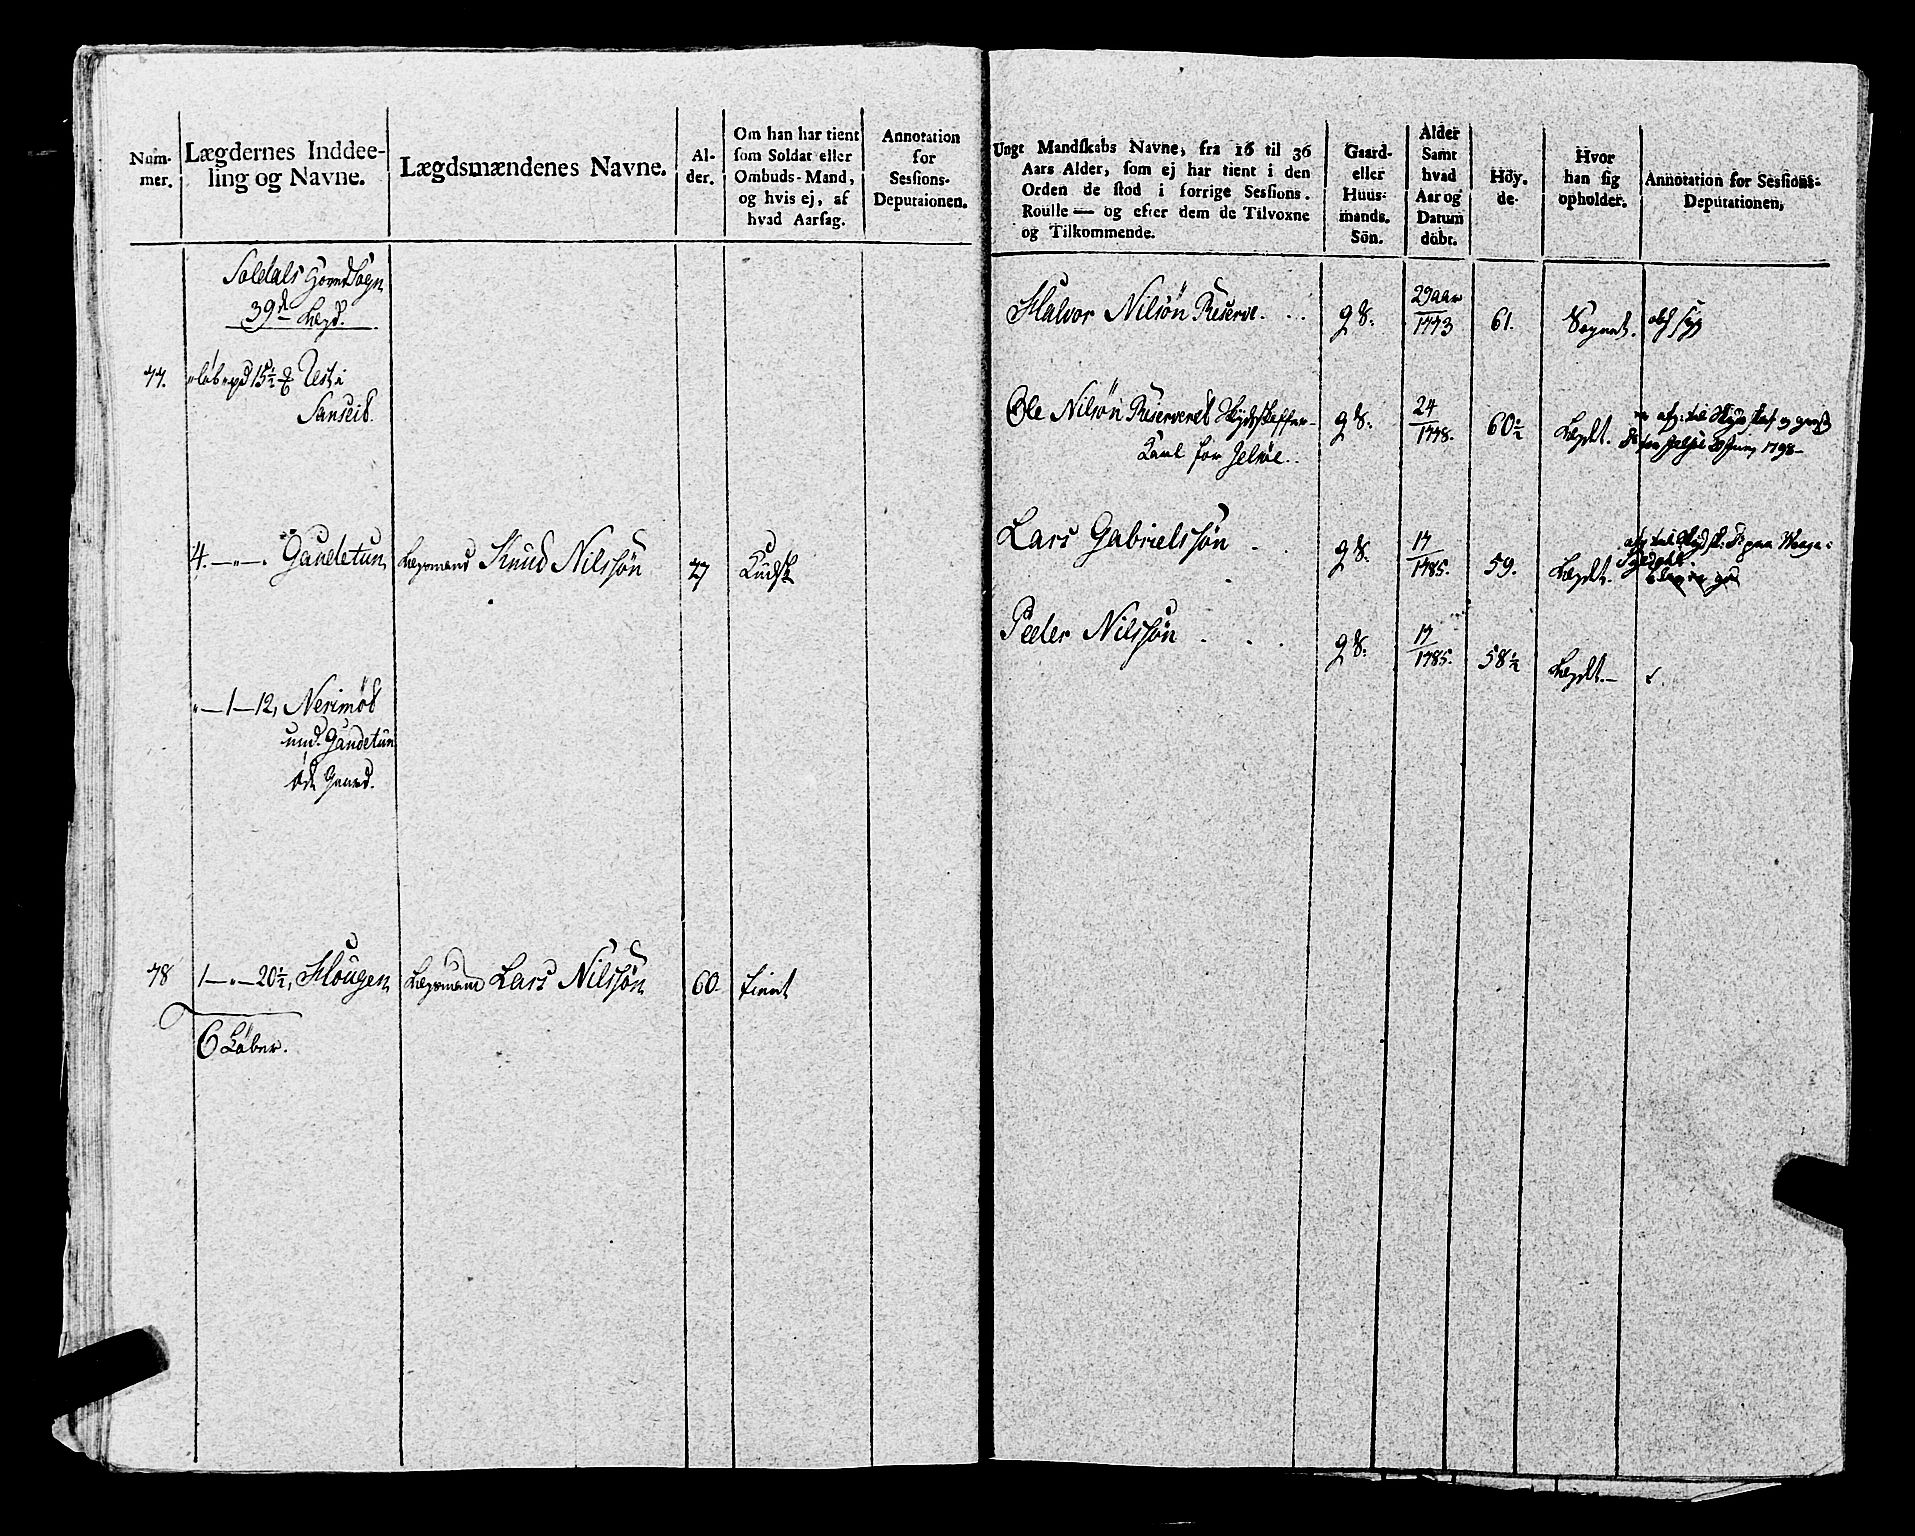 Num-
mer.
Lægdernes Inddee-
ling og Navne.
Lægdsmændenes Navne.
Al-
der.
Om han har tient
som Soldat eller
Ombuds-Mand,
og hvis ej, af
hvad Aarsag.
Annotation
for
Sessions-
Deputaionen.
Soledals HovedSogn
39de Lægd.
77.
15½
Sanseid
4. Gaudetun
Lægsmand Knud Nilssøn
77
1 — 12, Nerimød
und. Gaudetun
Øde Gaard.
78
1 — " — 20½, Hougen
Lægsmand Lars Nilssøn
60
tient
6 Løber.
Ungt Mandskabs Navne, fra 16 til 36
Aars Alder, som ej har tient i den
Orden de stod i forrige Sessions.
Roulle — og efter dem de Tilvoxne
og Tilkommende.
Gaard-
eller
Huus-
mands.
Sön.
Alder
Samt
hvad
Aar og
Datum
döbt.
Höy.
de.
Hvor
han sig
opholder.
Annotation for Sessions-
Deputationen,
Halvor Nilsøn Reserve. . .
g S.
29 aar
1773
61.
Sognet.
Ole Nilsøn Reserveret Skydskaffer-
Karl for Jelsøe.
g S.
24
1778.
60½
Lægdt.
1798
Lars Gabrielssøn
g S.
17
1785.
59.
Lægdt.
Peder Nilssøn . . .
g S.
17
1785.
58½
Lægdt.—